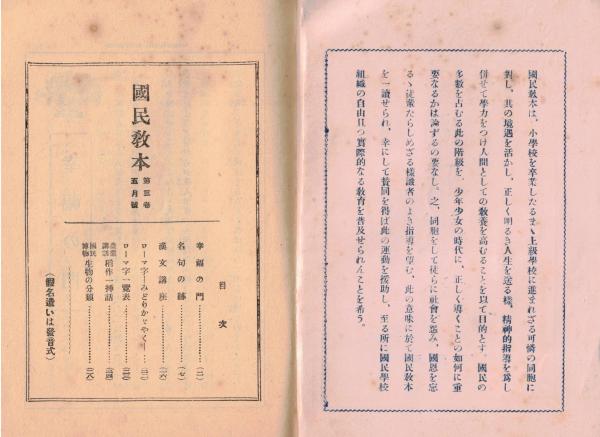 國民教本は、小學校を卒業したるまゝ上級學校に進まれざる可憐の同胞に
對し、其の境遇を活かし、正しく明るき人生を送る樣、精神的指導を爲し
併せて學力をつけ人間としての教養を高むることを以て目的とす。國民の
多數を占むる此の階級を、少年少女の時代に、正しく導くことの如何に重
要なるかは論ずるの要なし。之、同胞をして徒らに社會を怨み、國恩を忘
るゝ徒輩たらしめざる樣識者のよき指導を望む、此の意味に於て國民教本
を一讀せられ、幸にして賛同を得ば此の運動を援助し、至る所に國民學校
組織の自由且つ實際的なる教育を普及せられんことを希う。
國民教本 第三卷 五月號
目次
幸福の門………(二)
名句の跡………(七)
漢文講座………(一六)
ローマ字―みどりかゞやく
ローマ字一覽表
農業講話 稻作一挿話………(二四)
國民博物 生物の分類………(二八)
(假名遣いは發音式)